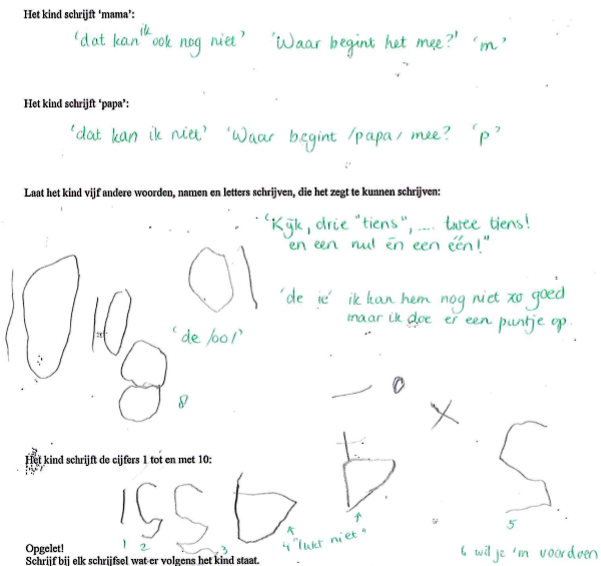 Het kind schrijft 'mama':
'dat kan ik ook nog niet' 'Waar begint het mee?' 'm'
Het kind schrijft 'papa':
'dat kan ik niet' 'Waar begint /papa/ mee? 'p'
Laat het kind vijf andere woorden, namen en letters schrijven, die het zegt te kunnen schrijven:
'Kijk, drie "tiens", .... twee tiens!
en een nul én een één!"
10 10 01
'de ie' ik kan hem nog niet zo goed
maar ik doe er een puntje op.
'de /oo/'
8
8
Het kind schrijft de cijfers 1 tot en met 10:
1 2 3 4 "lukt niet" 5
6 wil je 'm voordoen
Opgelet!
Schrijf bij elk schrijfsel wat er volgens het kind staat.